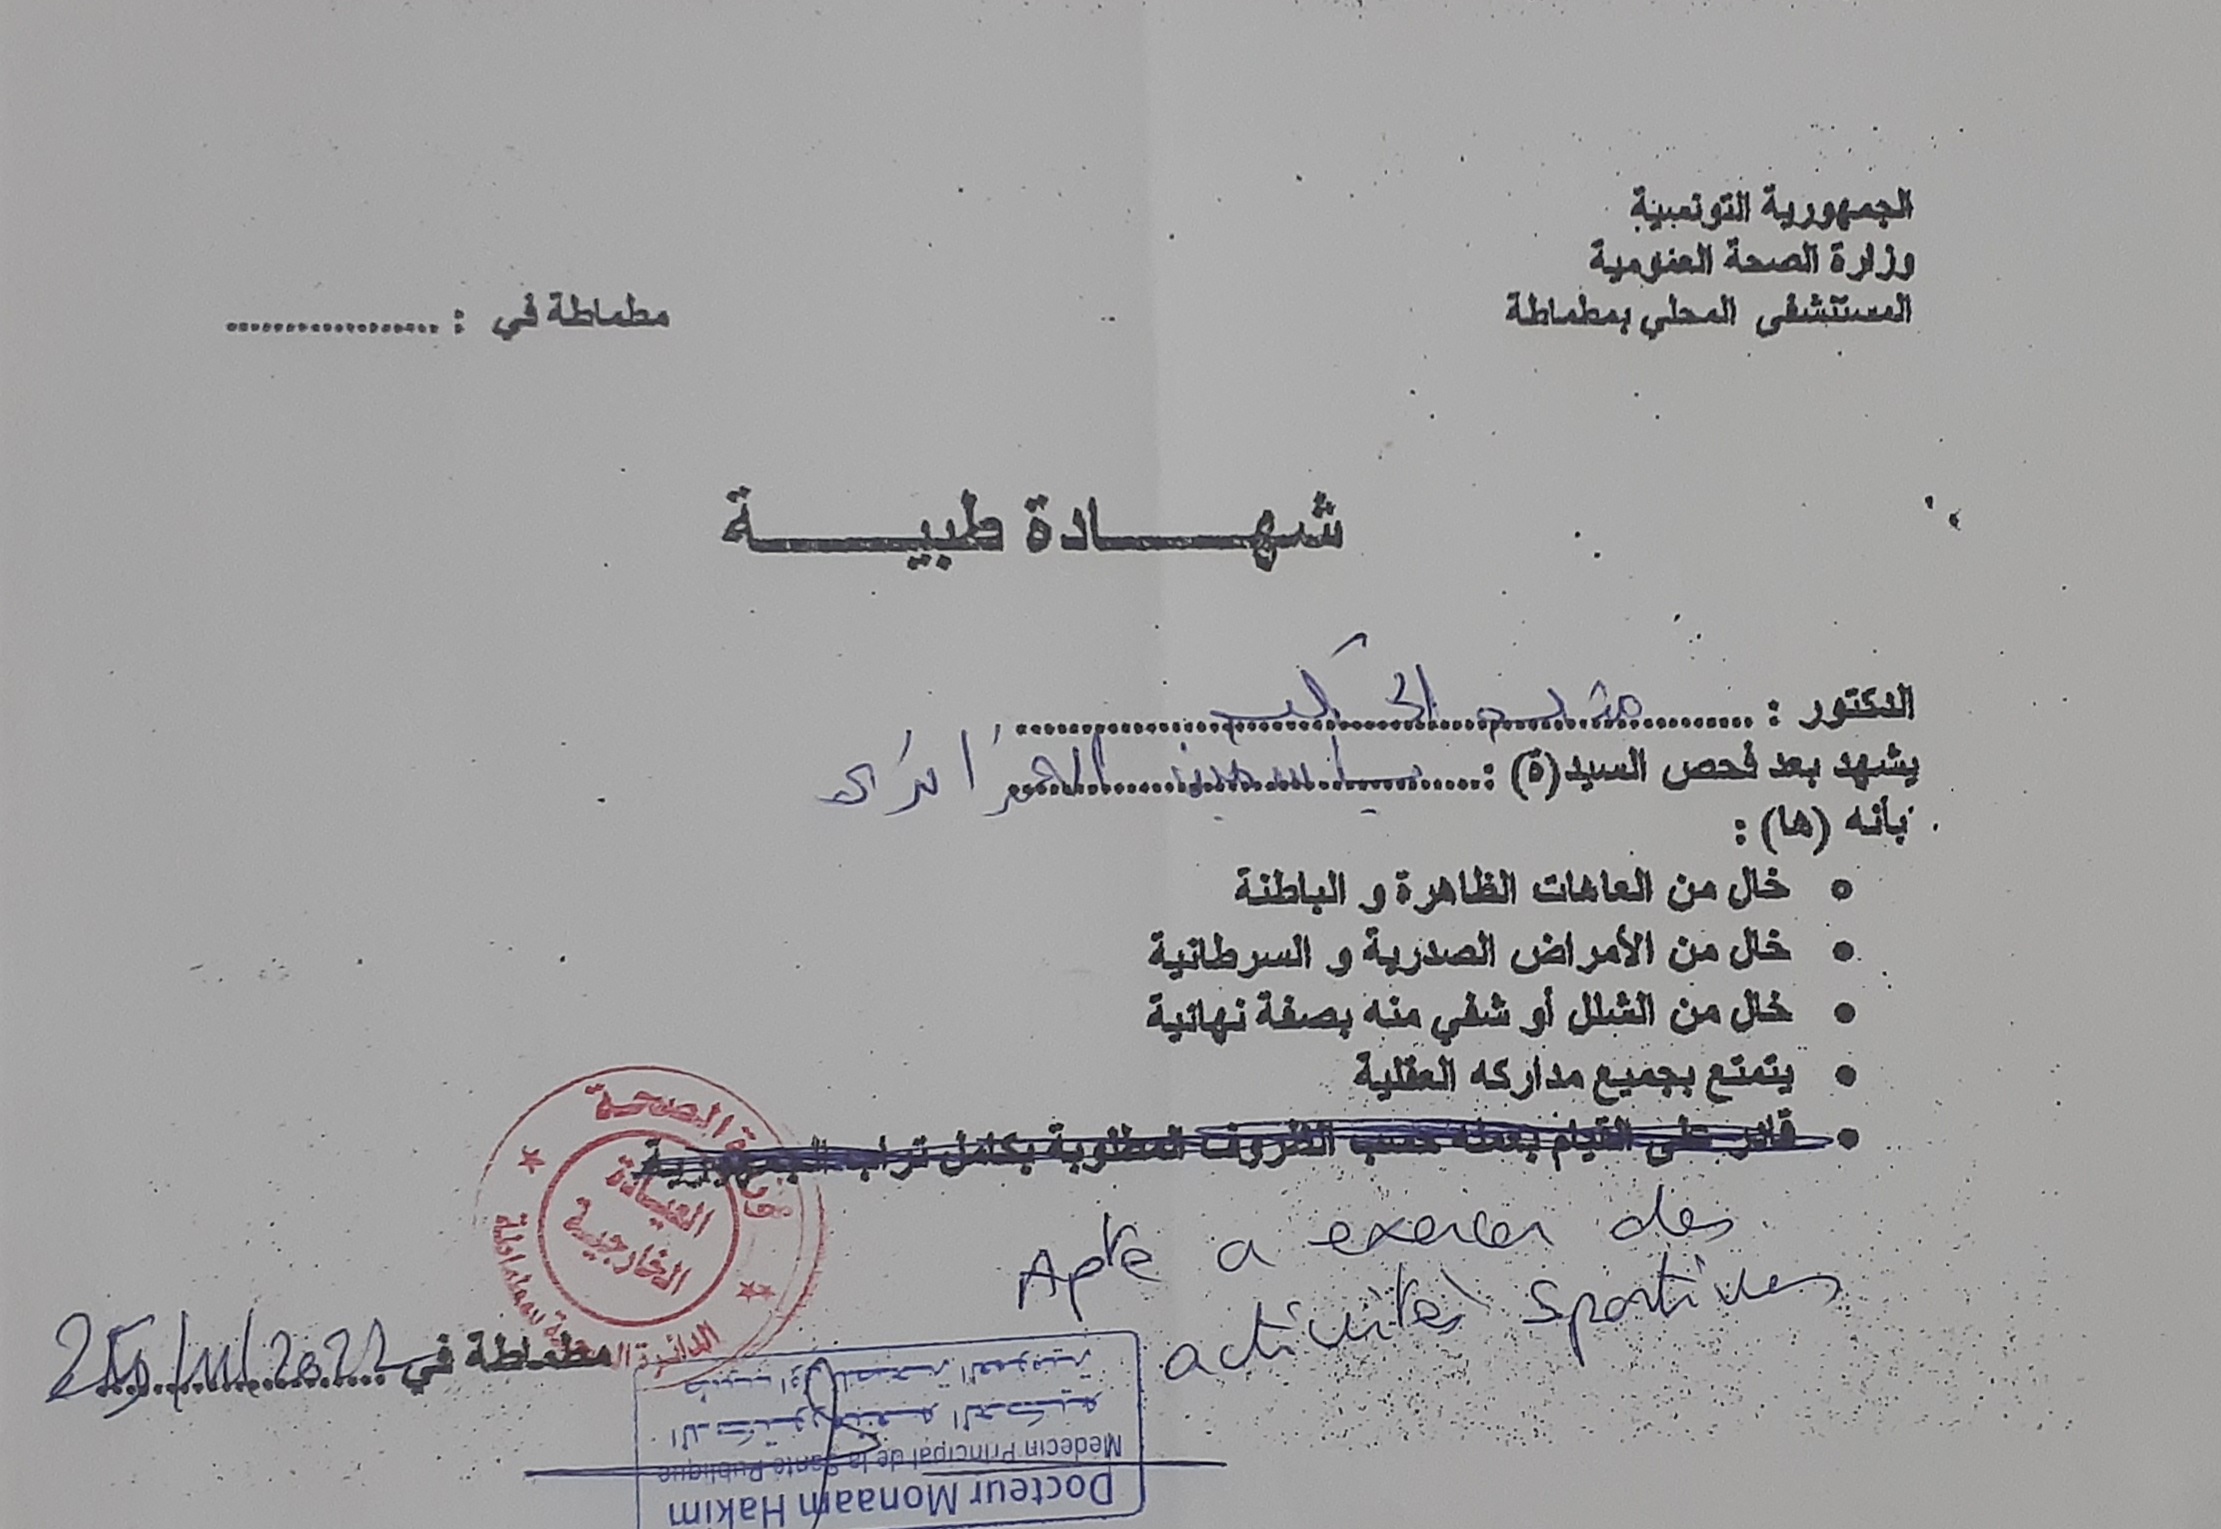 الجمهورية التونسية
وزارة الصحة العمومية
المستشفى المحلي بمطماطة
مطماطة في : ..................
شهــــــادة طبيــــــة
الدكتور : منعم الحكيم
يشهد بعد فحص السيد(ة) : ياسمين
بأنه (ها) :
• خال من العاهات الظاهرة و الباطنة
• خال من الأمراض الصدرية و السرطانية
• خال من الشلل أو شفي منه بصفة نهائية
• يتمتع بجميع مداركه العقلية
• قادر على القيام بعمله حسب الظروف المطلوبة بكامل تراب الجمهورية
Apte a exercer des
activités sportives
الصحة
العيادة
الخارجية
مطماطة في 25/11/2022
الدكتور منعم الحكيم
Médecin Principal de la Santé Publique
Docteur Monaam Hakim